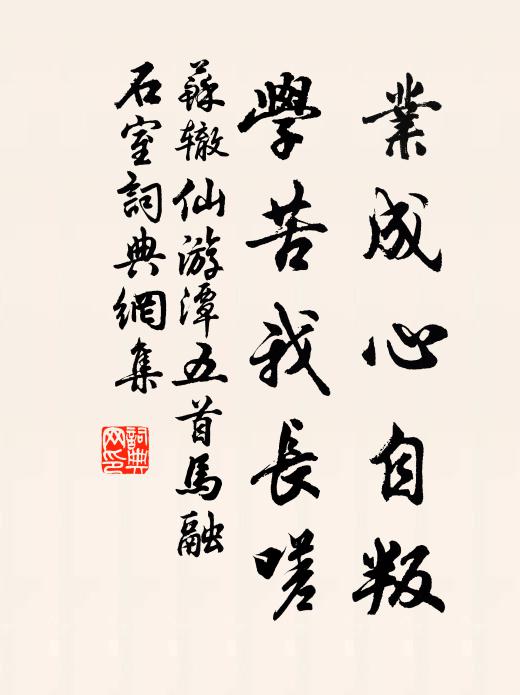 業成心自叛
學苦我長嗟
蘇辙仙游潭五首馬融
石室詞典網集
詞典网印